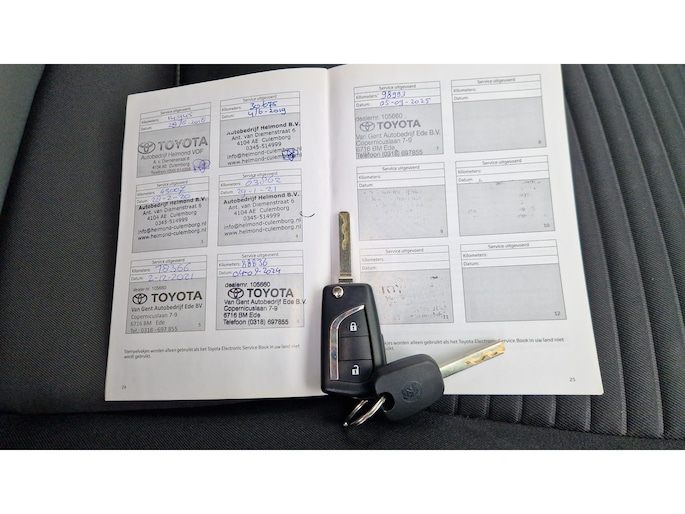 Service uitgevoerd
Kilometers:
TOYOTA
Autobedrijf Helmond VOF
A. v. Diemenstraat 6
Service uitgevoerd
Kilometers: 30675
Datum: 4/6-2019
Autobedrijf Helmond B.V.
Ant. van Diemenstraat 6
4104 AE Culemborg
0345-514999
info@helmond-culemborg.nl
www.helmond-culemborg.nl
Service uitgevoerd
Autobedrijf Helmond B.V.
Ant. van Diemenstraat 6
4104 AE Culemborg
0345-514999
info@helmond-culemborg.nl
www.helmond-culemborg.nl
3
Service uitgevoerd
Autobedrijf Helmond B.V.
Ant. van Diemenstraat 6
4104 AE Culemborg
0345-514999
info@helmond-culemborg.nl
www.helmond-culemborg.nl
4
Service uitgevoerd
Kilometers: 78366
Datum: 2-12-2021
dealer nr. 105660
TOYOTA
Van Gent Autobedrijf Ede BV.
Copernicuslaan 7-9
6716 BM Ede
Tel.: 0318 - 697 855
5
Service uitgevoerd
Kilometers: 88836
Datum:
dealernr. 105660
TOYOTA
Van Gent Autobedrijf Ede B.V.
Copernicuslaan 7-9
6716 BM Ede
Telefoon (0318) 697855
6
Stempelvakjes worden alleen gebruikt als het Toyota Electronic Service Book in uw land niet
wordt gebruikt.
24
Service uitgevoerd
Kilometers: 98991
Datum: 05-09-2025
dealernr: 105660
TOYOTA
Van Gent Autobedrijf Ede B.V.
Copernicuslaan 7-9
6716 BM Ede
Telefoon (0318) 697855
7
Service uitgevoerd
Kilometers:
Datum:
8
Service uitgevoerd
Kilometers:
Datum:
9
Service uitgevoerd
Kilometers:
Datum:
10
Service uitgevoerd
Kilometers:
Datum:
Service uitgevoerd
Kilometers:
Datum:
12
worden alleen gebruikt als het Toyota Electronic Service Book in uw land niet
25